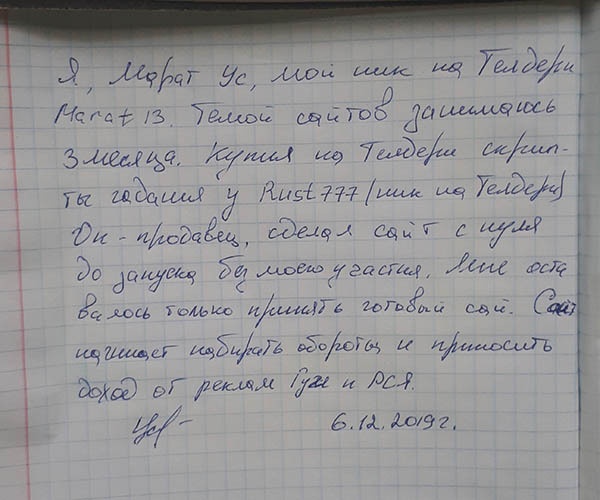 Я, Марат Ус, мой ник на Телдери
Marat13. Темой сайтов занимаюсь
3 месяца. Купил на Телдери скрип-
ты гадания у Rust777 (ник на Телдери)
Он - продавец, сделал сайт с нуля
до запуска без моего участия. Мне оста
валось только принять готовый сай. Сайт
начинает набирать обороты и приносить
доход от реклам и РСЯ.
6.12.2019г.